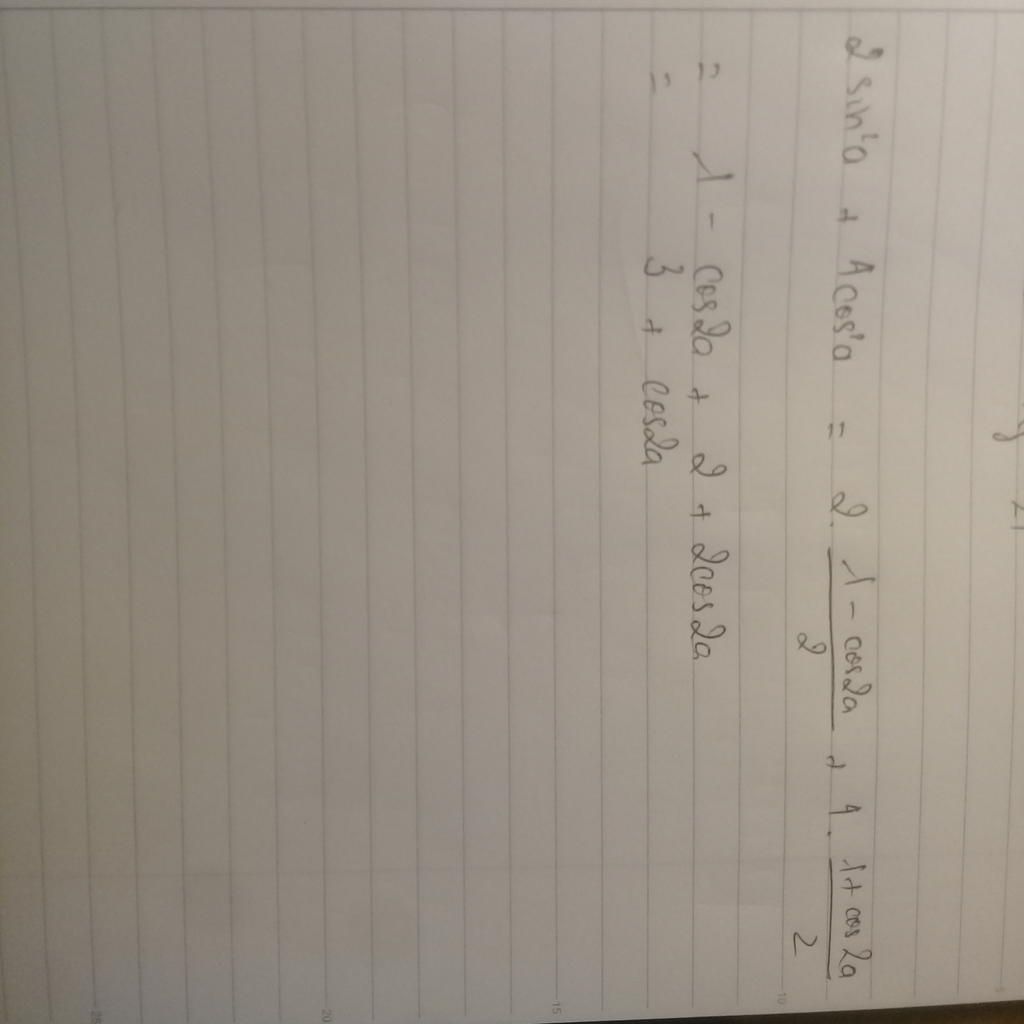 2 sin²a + 4cos²a = 2 . (1 - cos2a)/2 + 4 . (1 + cos2a)/2
= 1 - cos2a + 2 + 2cos2a
= 3 + cos2a